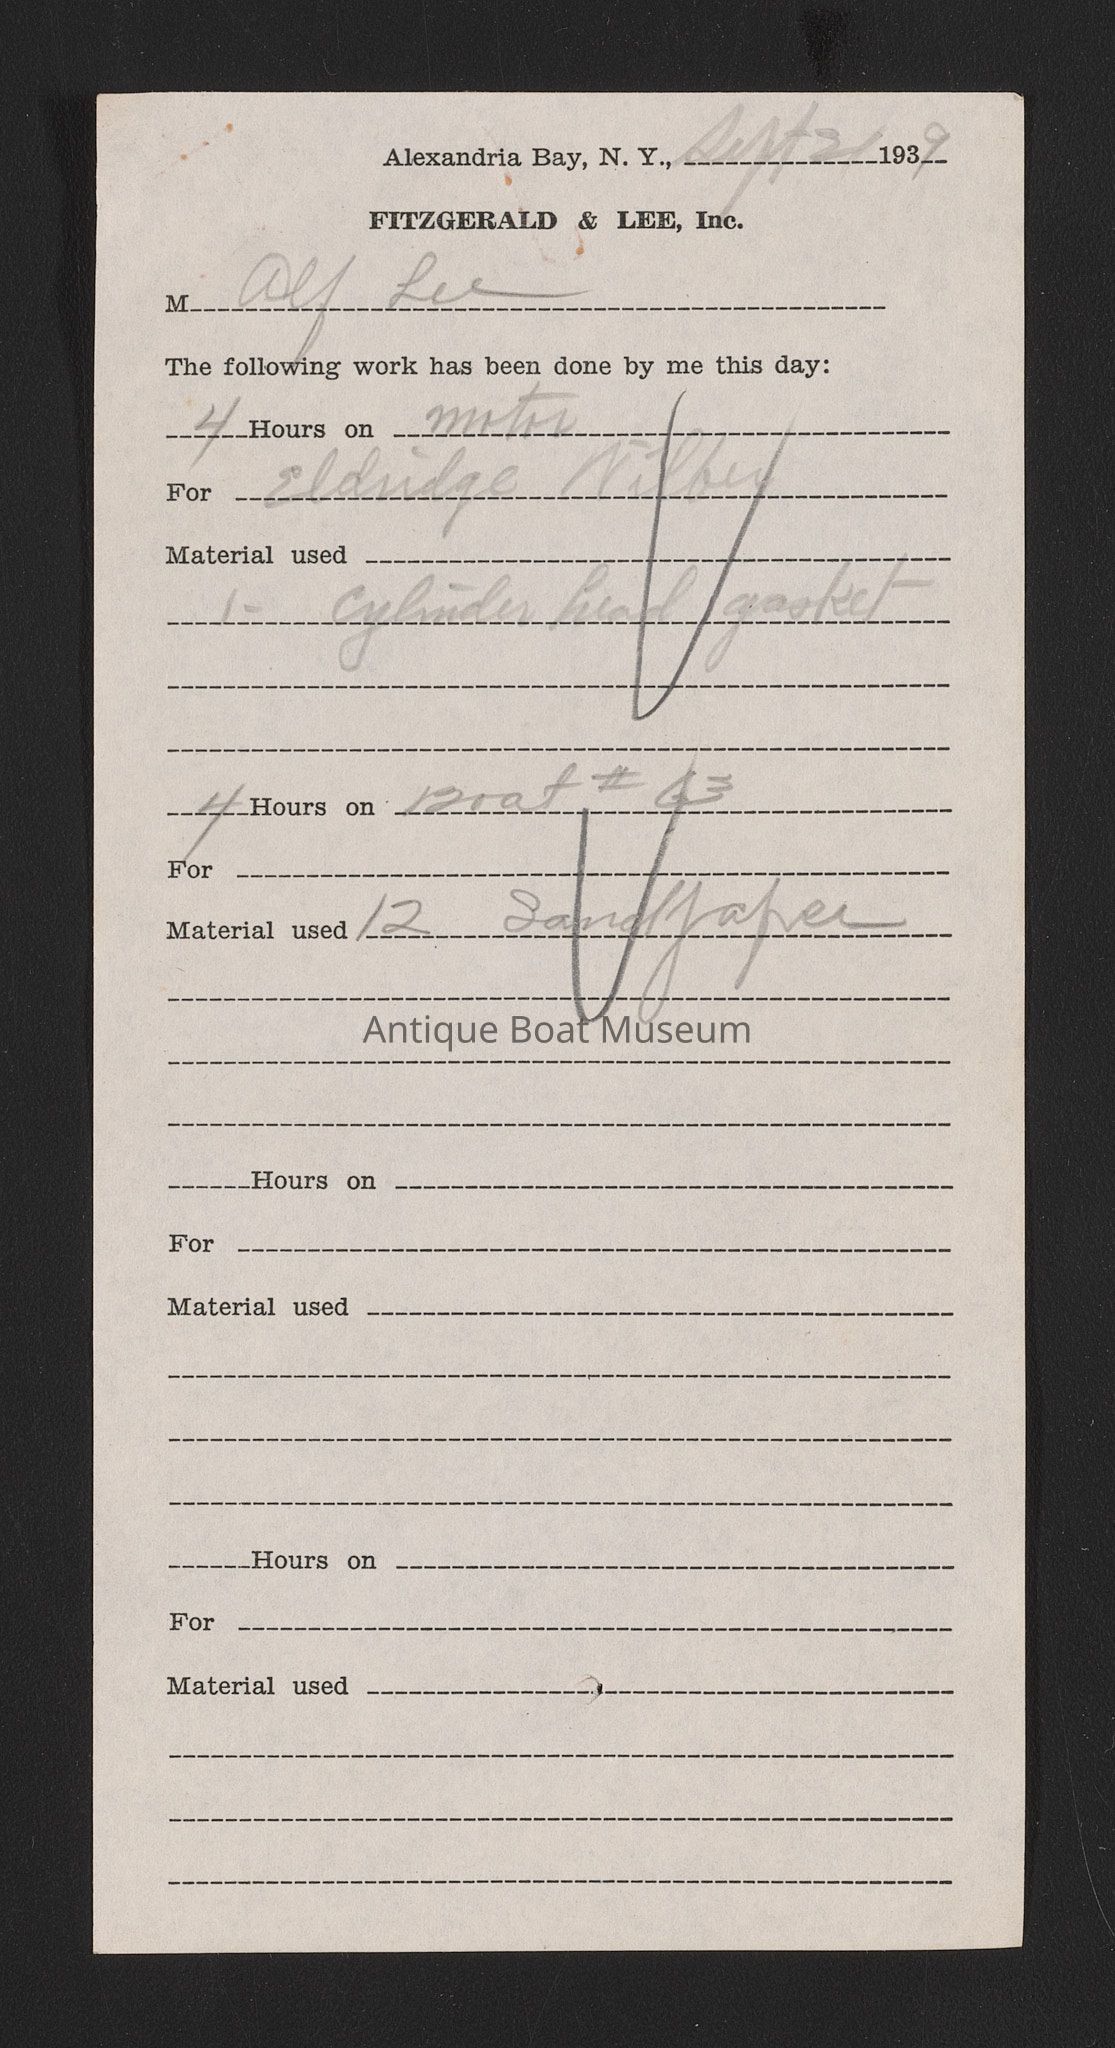 Alexandria Bay, N. Y., Sept 21 1939
FITZGERALD & LEE, Inc.
M Alf Lee
The following work has been done by me this day:
4 Hours on motor
For Eldridge Wilbey
Material used
1 - Cylinder head gasket
4 Hours on Boat # 63
For
Material used 12 Sandpaper
Antique Boat Museum
Hours on
For
Material used
Hours on
For
Material used